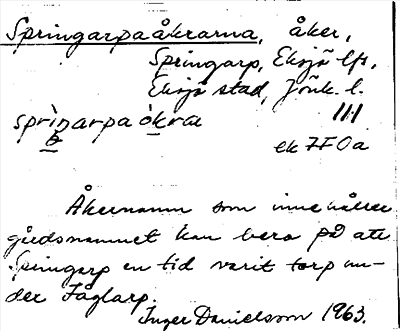 Springarpaåkrarna, åker,
Springarp, Eksjö lfs,
Eksjö stad, Jönk. l.
springarpa åkra
ek 7F0a
Åkernamn som innehåller
gårdsnamnet kan bero på att
Springarp en tid varit torp un-
der Fåglarp.
Inger Danielsson 1963.